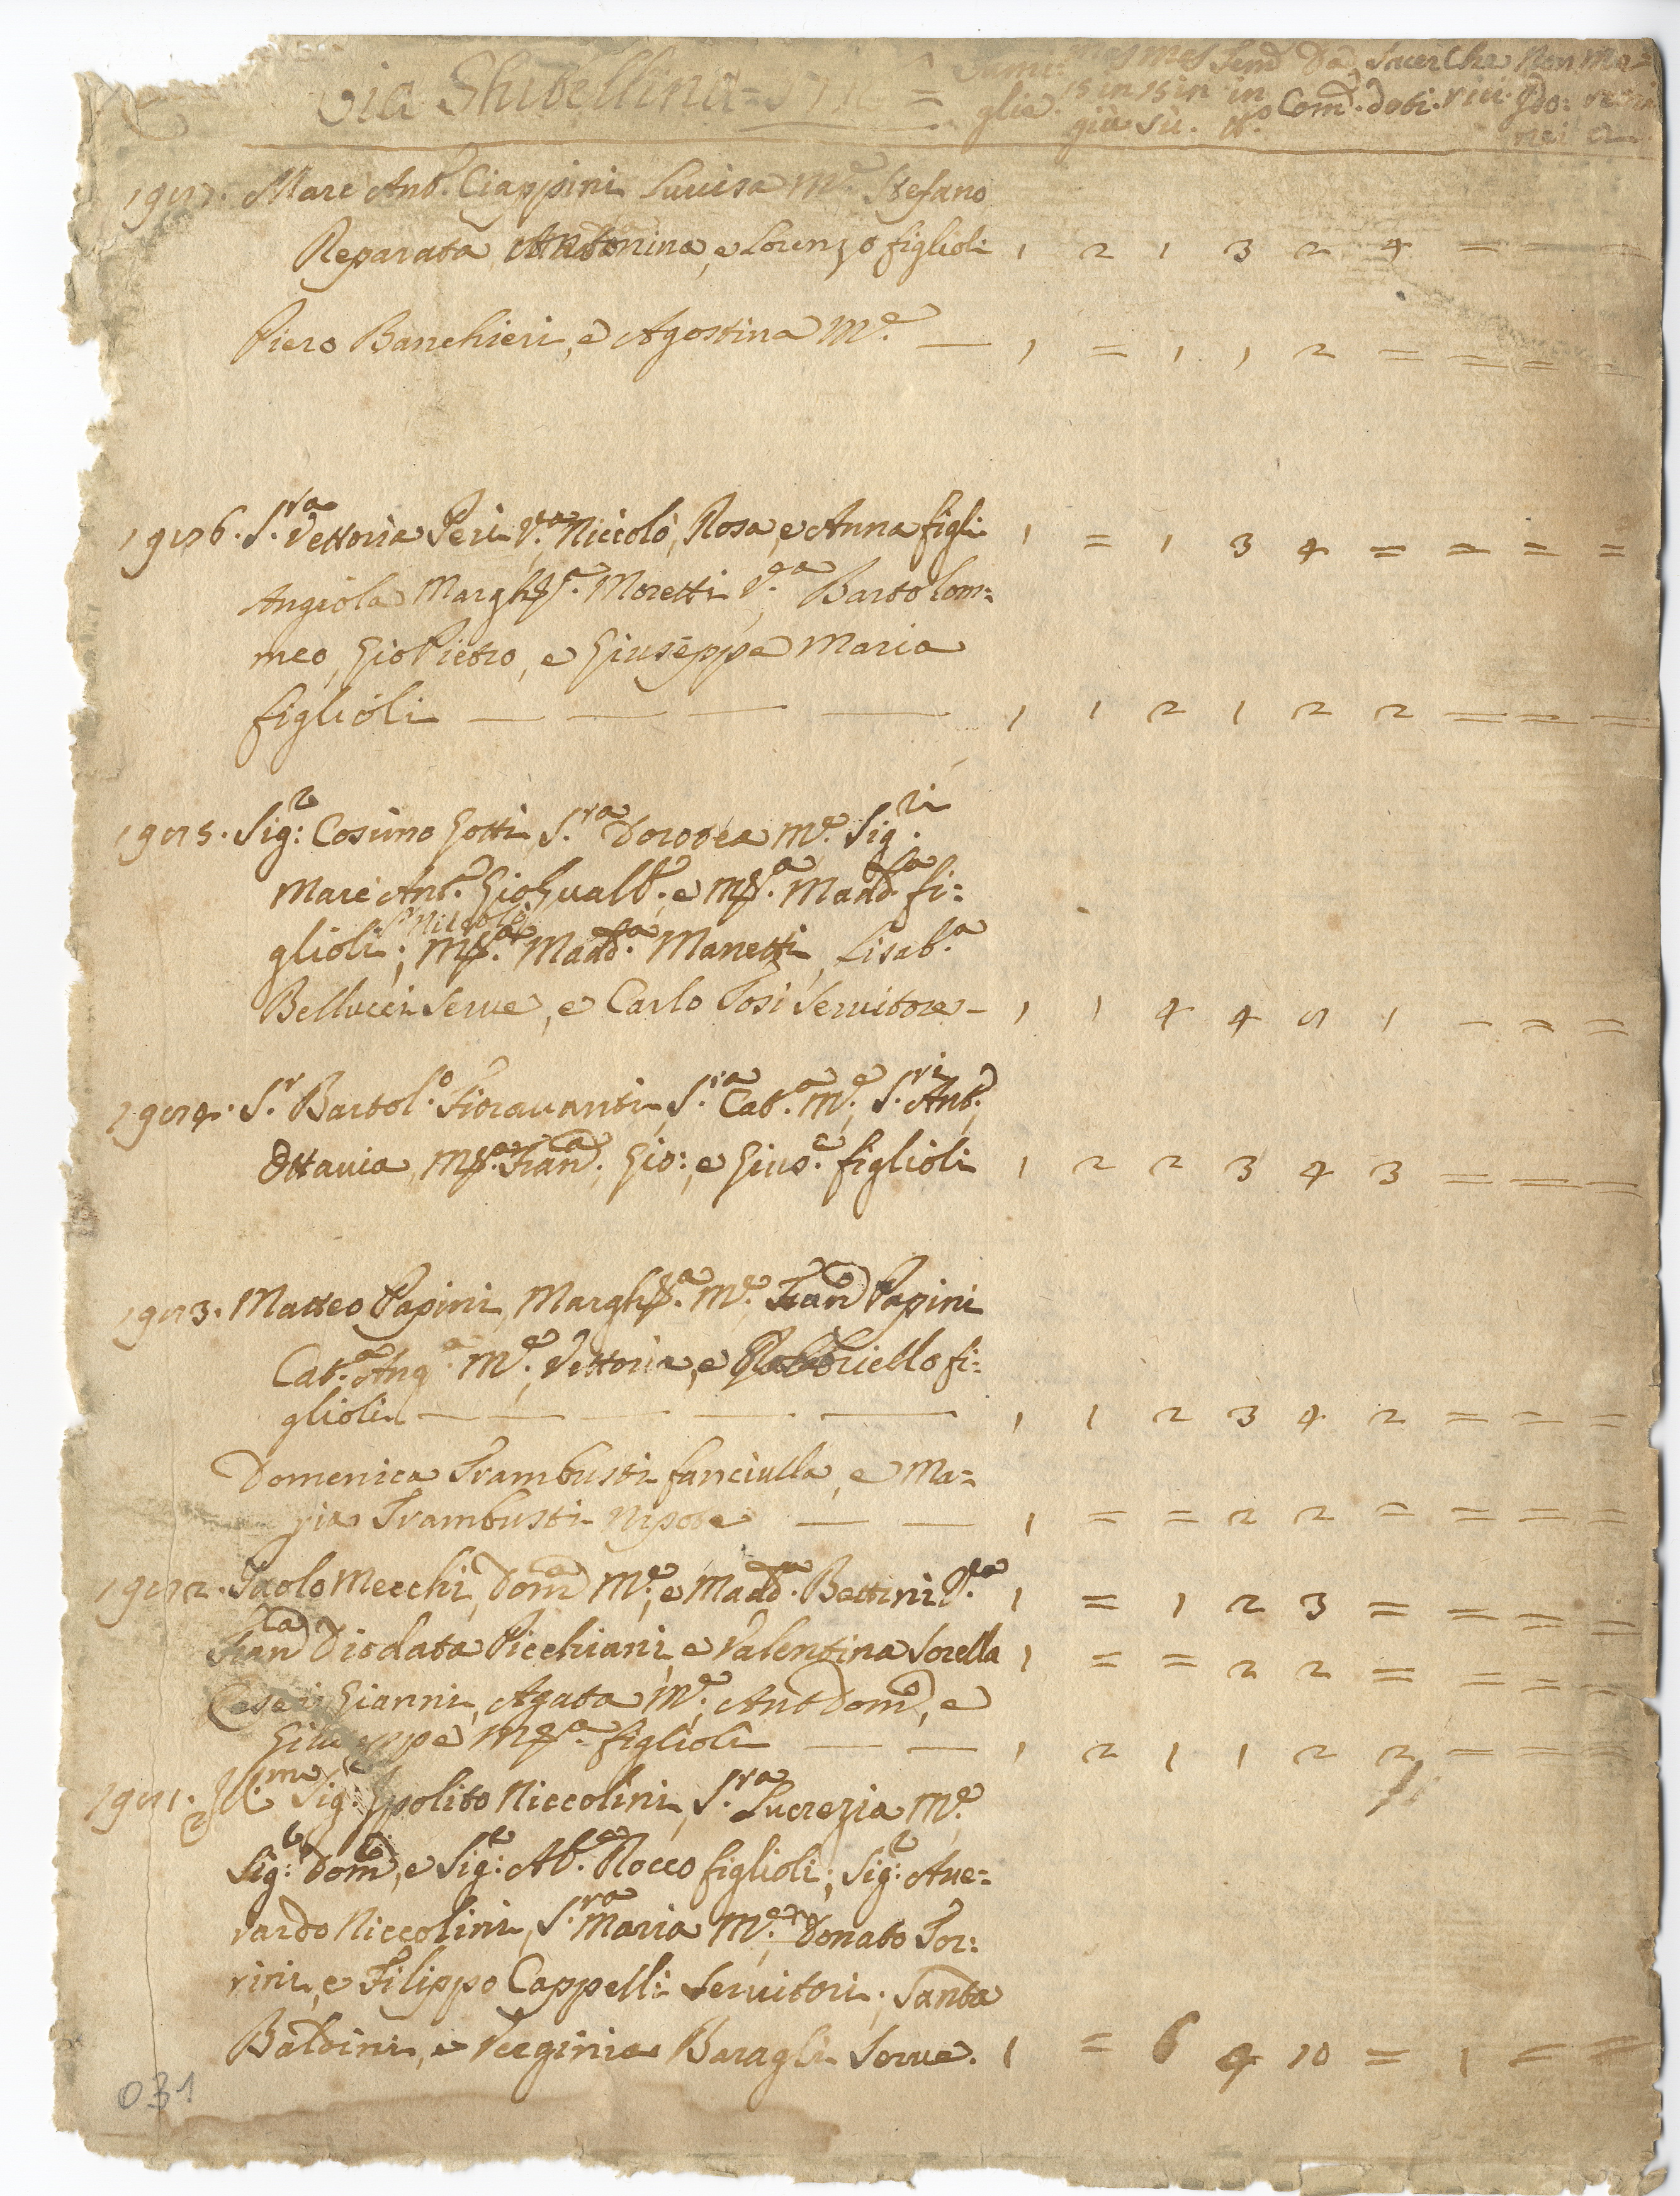 Via Ghibellina
Fami= Mas Mas Fem Da Sacer Che Non Ma=
glie. 15 in 15 in in Com. doti. rici. Ido: remi
giù sù. nei
Marc Ant.o Ciappini Luuisa M.e Stefano
Reparata Antonina, e Lorenzo figlioli 1 2 1 3 2 4 = = =
Piero Banchieri, e Agostina M.e — 1 = 1 1 2 = = = =
S.ra Vettoria Peri V.a Niccolò, Rosa, e Anna figli 1 = 1 3 4 = = = =
Angiola Margh.ta Moretti V.a Bartolom=
meo, Gio Pietro, e Giuseppe Maria
figlioli — — — — 1 1 2 1 2 2 = = =
Sig:r Cosimo Gotti S.ra Dorotea M.e Sig.ri
Marc Ant.o Gio Gualb.o, e M.a Madd.a fi=
S.r Niccolò
glioli; M.a Madd.a Manetti, Lisab.a
Bellucci Serue, e Carlo Tosi Seruitore — 1 1 4 4 5 1 — = =
S.r Bartol.o Fiorauanti, S.ra Cat.a M.e, S.ri Ant.o,
Ottauia, M.a Fran.a, Gio:, e Gius.e figlioli 1 2 2 3 4 3 = = =
Matteo Papini, Margh.ta M.e, Fran.o Papini
Cat.a Ang.a M.e, Vettoria, e Gabbriello fi=
glioli — — — — — 1 1 2 3 4 2 = = =
Domenica Trambusti fanciulla, e Ma=
ria Trambusti Nipote — — 1 = = 2 2 = = = =
Paolo Mecchi, Dom.a M.e, e Madd.a Bettini V.a 1 = 1 2 3 = = = =
Fran.ca Diodata Picchiani, e Valentina Sorella 1 = = 2 2 = = = =
Gianni, Agata M.e, Ant Dom.o, e
Giuseppe M.a figlioli — — 1 2 1 1 2 2 = = =
Ill.mo Sig:r Ipolito Niccolini, S.ra Lucrezia M.e
Sig:r Dom.o, e Sig:r Ab.e Rocco figlioli; Sig:r Aue=
rardo Niccolini, S.ra Maria M.e, Donato Tor=
rini, e Filippo Cappelli Seruitori. Santa
Baldini, e Verginia Baragli Serue. 1 = 6 4 10 = 1 = =
031